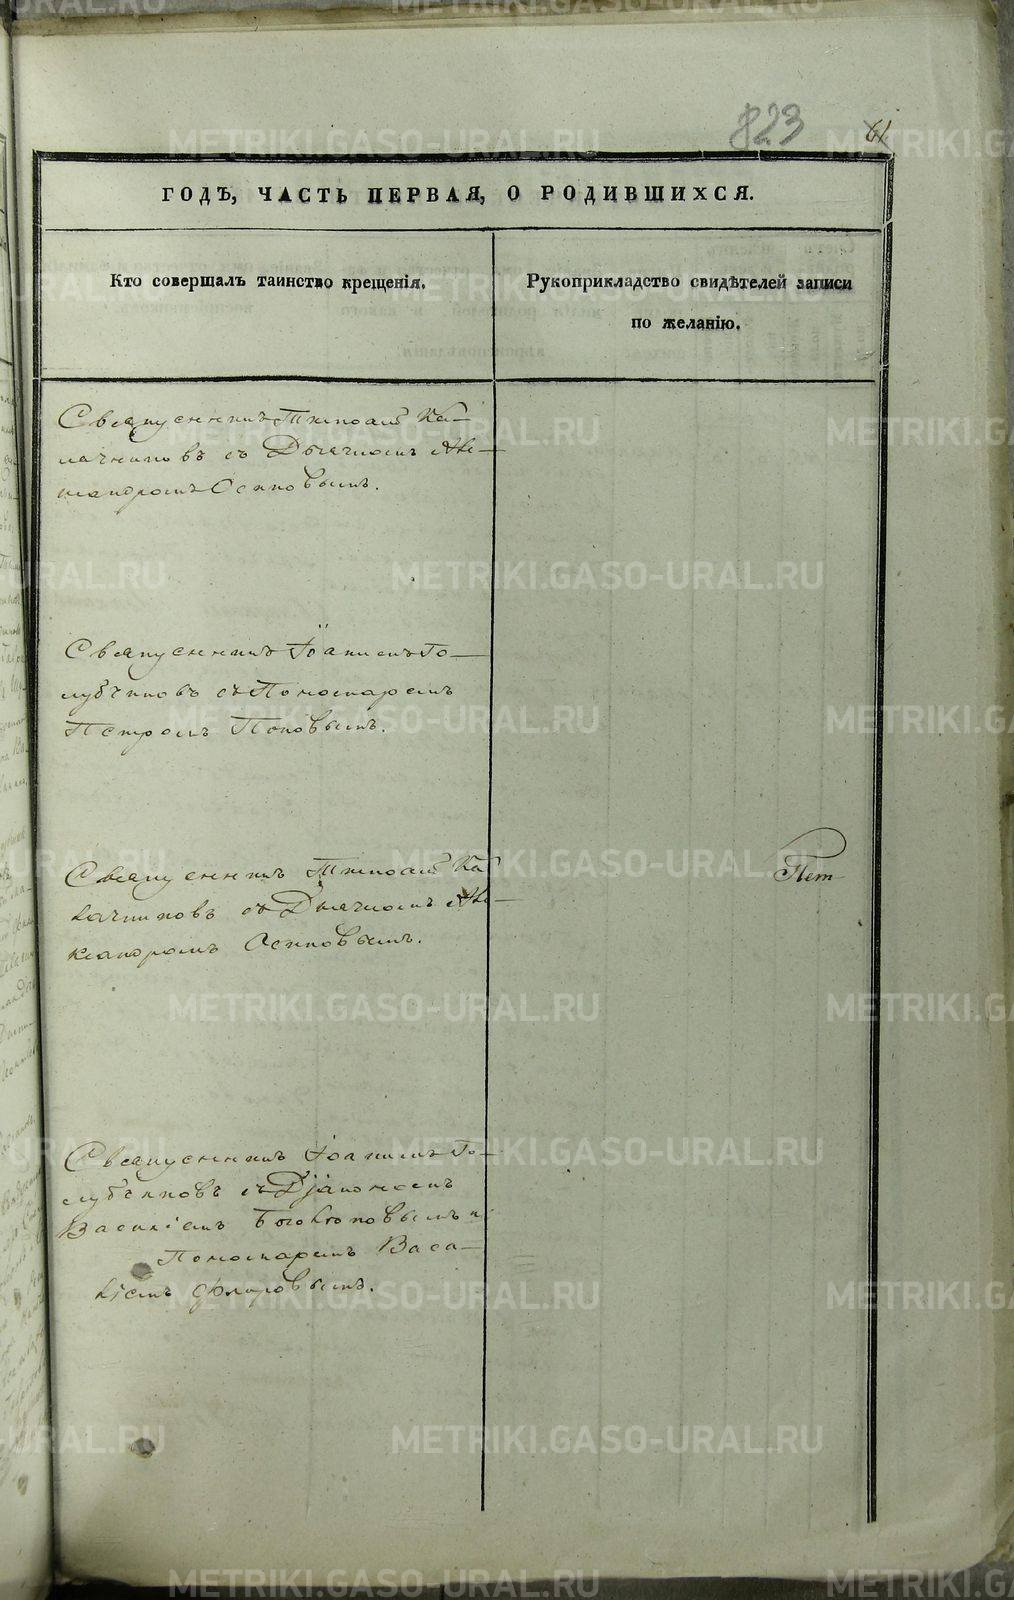 823
61
ГОДЪ, ЧАСТЬ ПЕРВАЯ, О РОДИВШИХСЯ.
Кто совершалъ таинство крещенія.
Рукоприкладство свидѣтелей записи
по желанію.
Священникъ Тимоѳей Ка-
лачниковъ съ Дьячкомъ Але-
ксандромъ Осиповымъ.
Священникъ Іоаннъ Го-
лубчиковъ съ Пономаремъ
Петромъ Поповымъ.
Священникъ Тимоѳей Ка
лачниковъ съ Дьячкомъ Але-
ксандромъ Осиповымъ.
Священникъ Іоаннъ Го-
лубчиковъ съ Діакономъ
Василіемъ и
Пономаремъ Васи-
ліемъ Флоровымъ.
METRIKI.GASO-URAL.RU